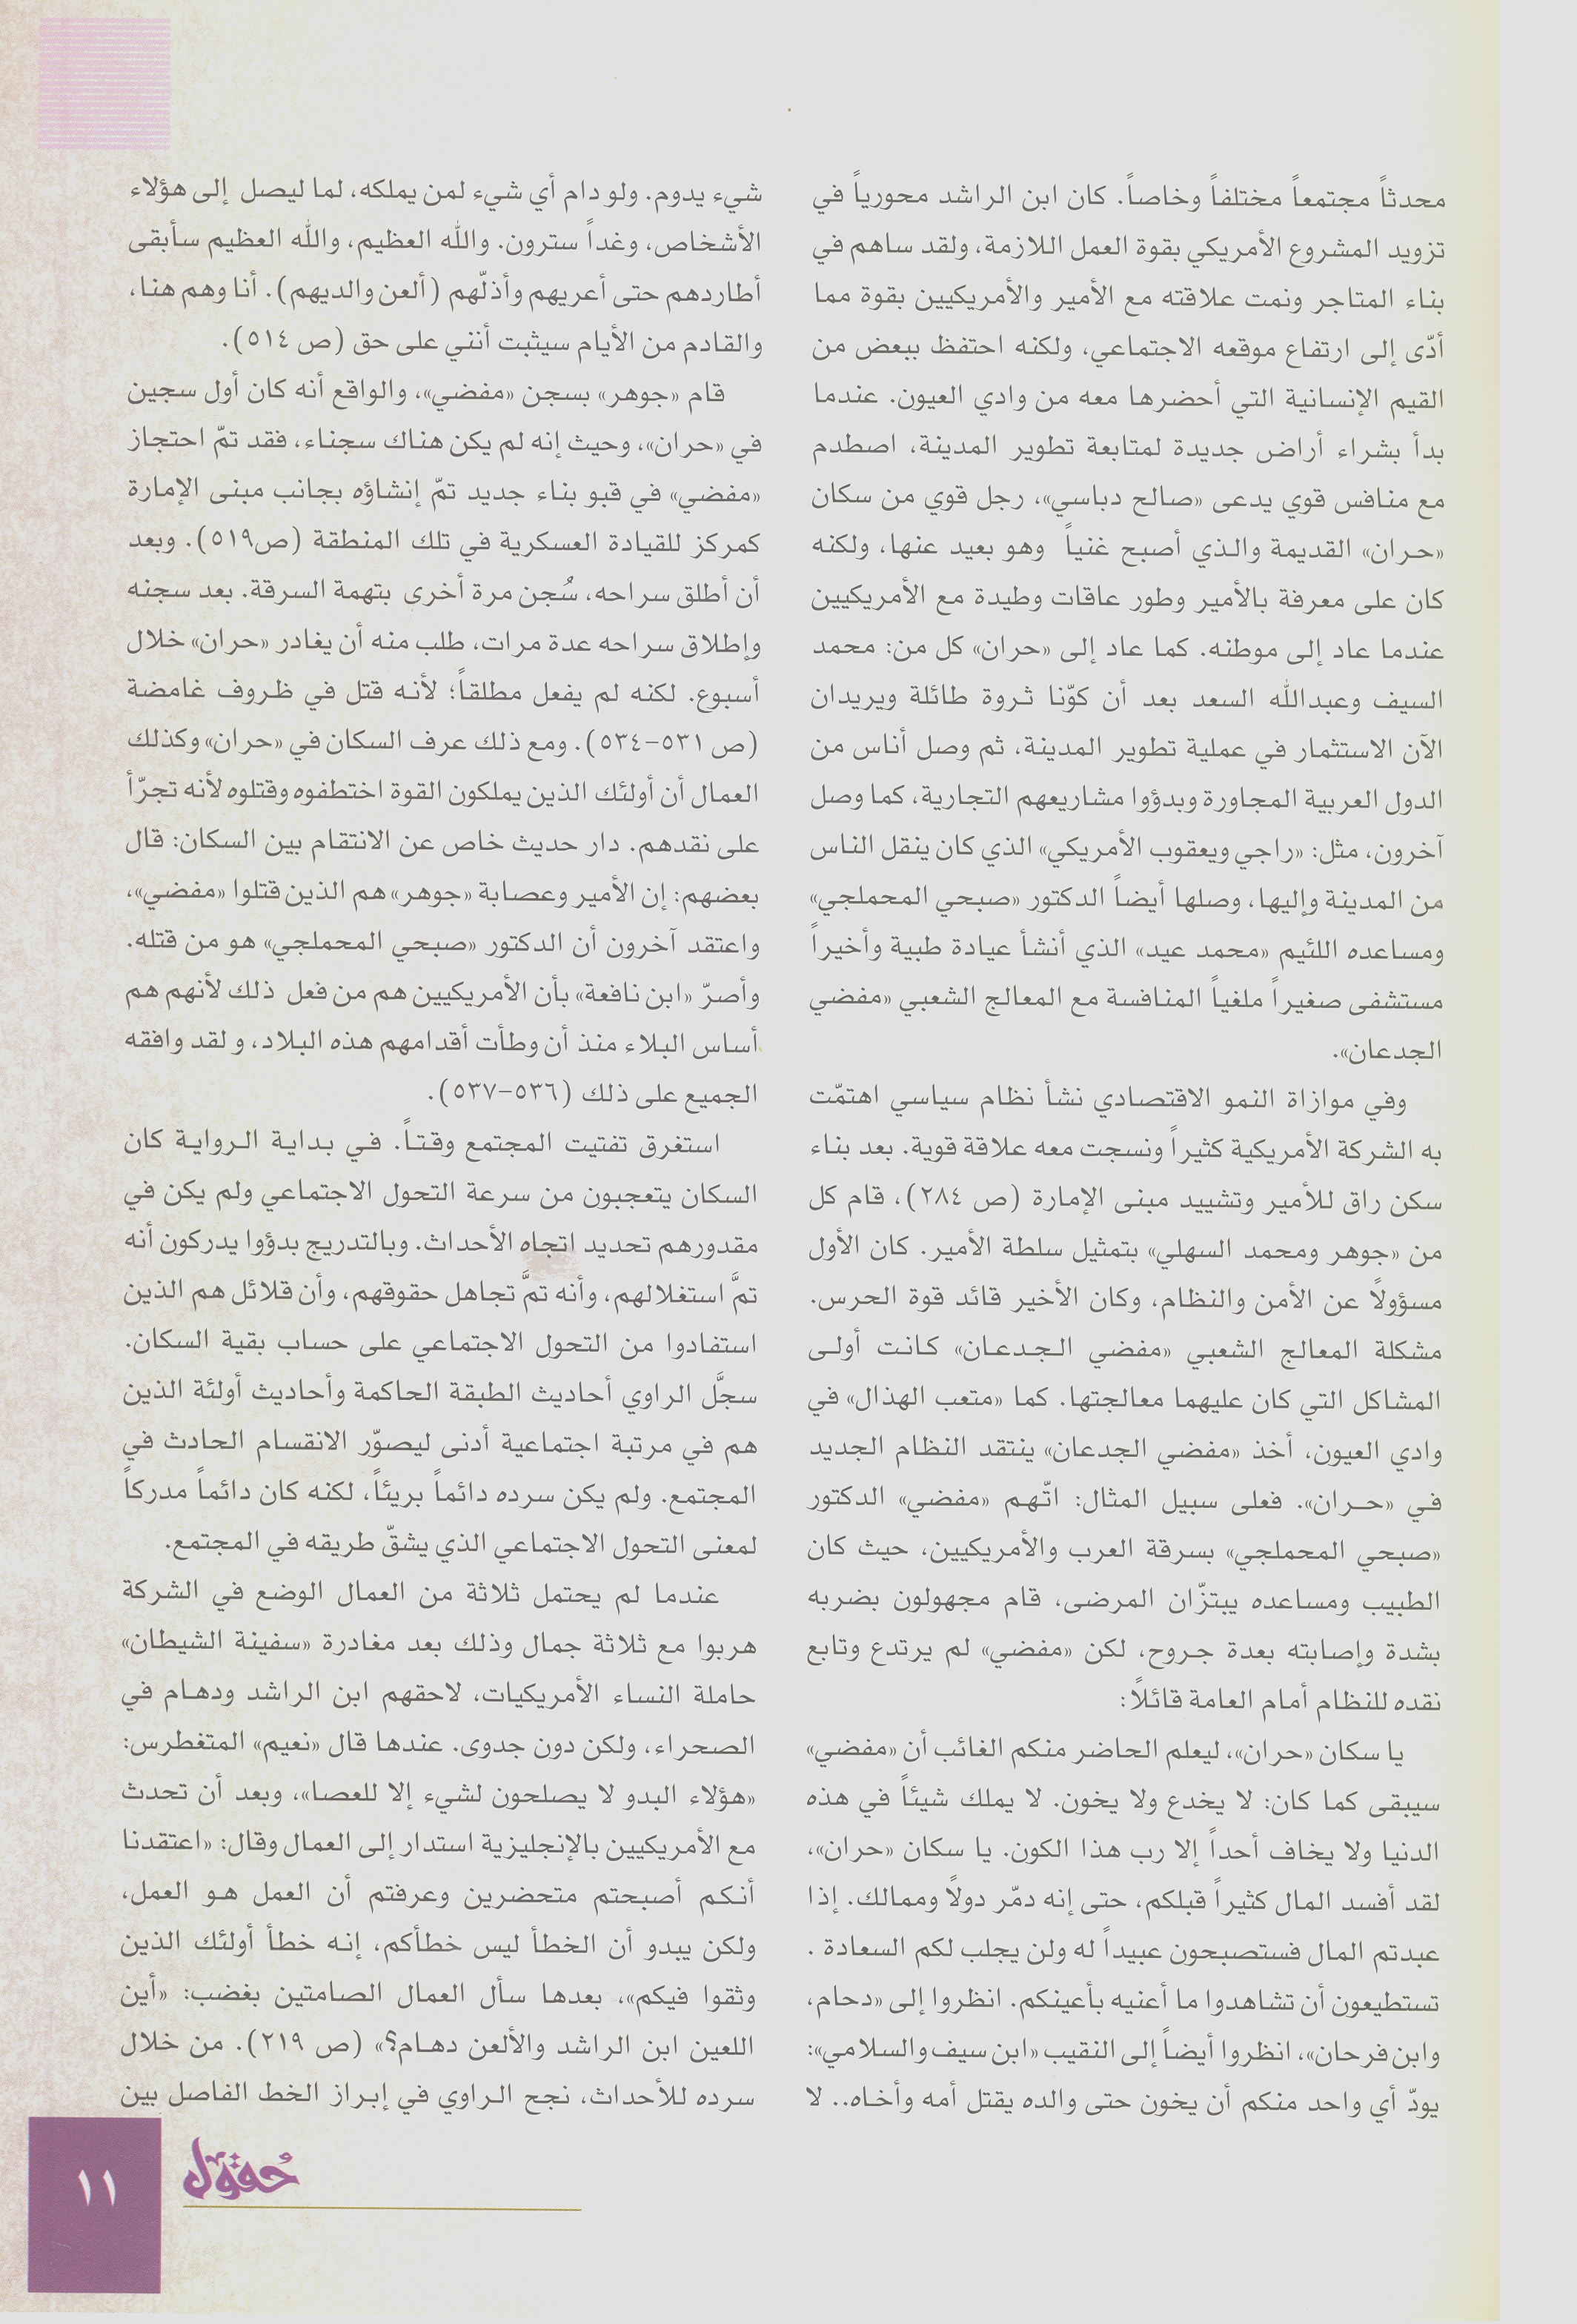 محدثاً مجتمعاً مختلفاً وخاصاً. كان ابن الراشد محورياً في
تزويد المشروع الأمريكي بقوة العمل اللازمة، ولقد ساهم في
بناء المتاجر ونمت علاقته مع الأمير والأمريكيين بقوة مما
أدّى إلى ارتفاع موقعه الاجتماعي، ولكنه احتفظ ببعض من
القيم الإنسانية التي أحضرها معه من وادي العيون. عندما
بدأ بشراء أراض جديدة لمتابعة تطوير المدينة، اصطدم
مع منافس قوي يدعى «صالح دباسي»، رجل قوي من سكان
«حران» القديمة والذي أصبح غنياً وهو بعيد عنها، ولكنه
كان على معرفة بالأمير وطور عاقات وطيدة مع الأمريكيين
عندما عاد إلى موطنه. كما عاد إلى «حران» كل من: محمد
السيف وعبدالله السعد بعد أن كوّنا ثروة طائلة ويريدان
الآن الاستثمار في عملية تطوير المدينة، ثم وصل أناس من
الدول العربية المجاورة وبدؤوا مشاريعهم التجارية، كما وصل
آخرون، مثل: «راجي ويعقوب الأمريكي» الذي كان ينقل الناس
من المدينة وإليها، وصلها أيضاً الدكتور «صبحي المحملجي»
ومساعده اللئيم «محمد عيد» الذي أنشأ عيادة طبية وأخيراً
مستشفى صغيراً ملغياً المنافسة مع المعالج الشعبي «مفضي
الجدعان».
وفي موازاة النمو الاقتصادي نشأ نظام سياسي اهتمّت
به الشركة الأمريكية كثيراً ونسجت معه علاقة قوية. بعد بناء
سكن راق للأمير وتشييد مبنى الإمارة (ص ٢٨٤)، قام كل
من «جوهر ومحمد السهلي» بتمثيل سلطة الأمير. كان الأول
مسؤولاً عن الأمن والنظام، وكان الأخير قائد قوة الحرس.
مشكلة المعالج الشعبي «مفضي الجدعان» كانت أولى
المشاكل التي كان عليهما معالجتها. كما «متعب الهذال» في
وادي العيون، أخذ «مفضي الجدعان» ينتقد النظام الجديد
في «حران». فعلى سبيل المثال: اتّهم «مفضي» الدكتور
«صبحي المحملجي» بسرقة العرب والأمريكيين، حيث كان
الطبيب ومساعده يبتزّان المرضى، قام مجهولون بضربه
بشدة وإصابته بعدة جروح، لكن «مفضي» لم يرتدع وتابع
نقده للنظام أمام العامة قائلاً:
يا سكان «حران»، ليعلم الحاضر منكم الغائب أن «مفضي»
سيبقى كما كان: لا يخدع ولا يخون. لا يملك شيئاً في هذه
الدنيا ولا يخاف أحداً إلا رب هذا الكون. يا سكان «حران»،
لقد أفسد المال كثيراً قبلكم، حتى إنه دمّر دولاً وممالك. إذا
عبدتم المال فستصبحون عبيداً له ولن يجلب لكم السعادة .
تستطيعون أن تشاهدوا ما أعنيه بأعينكم. انظروا إلى «دحام،
وابن فرحان»، انظروا أيضاً إلى النقيب «ابن سيف والسلامي»:
يودّ أي واحد منكم أن يخون حتى والده يقتل أمه وأخاه.. لا
شيء يدوم. ولو دام أي شيء لمن يملكه، لما ليصل إلى هؤلاء
الأشخاص، وغداً سترون. والله العظيم، والله العظيم سأبقى
أطاردهم حتى أعريهم وأذلّهم (ألعن والديهم). أنا وهم هنا،
والقادم من الأيام سيثبت أنني على حق (ص ٥١٤).
قام «جوهر» بسجن «مفضي»، والواقع أنه كان أول سجين
في «حران»، وحيث إنه لم يكن هناك سجناء، فقد تمّ احتجاز
«مفضي» في قبو بناء جديد تمّ إنشاؤه بجانب مبنى الإمارة
كمركز للقيادة العسكرية في تلك المنطقة (ص٥١٩). وبعد
أن أطلق سراحه، سُجن مرة أخرى بتهمة السرقة. بعد سجنه
وإطلاق سراحه عدة مرات، طلب منه أن يغادر «حران» خلال
أسبوع. لكنه لم يفعل مطلقاً؛ لأنه قتل في ظروف غامضة
(ص ٥٣١-٥٣٤). ومع ذلك عرف السكان في «حران» وكذلك
العمال أن أولئك الذين يملكون القوة اختطفوه وقتلوه لأنه تجرّأ
على نقدهم. دار حديث خاص عن الانتقام بين السكان: قال
بعضهم: إن الأمير وعصابة «جوهر» هم الذين قتلوا «مفضي»،
واعتقد آخرون أن الدكتور «صبحي المحملجي» هو من قتله.
وأصرّ «ابن نافعة» بأن الأمريكيين هم من فعل ذلك لأنهم هم
أساس البلاء منذ أن وطأت أقدامهم هذه البلاد، و لقد وافقه
الجميع على ذلك (٥٣٦-٥٣٧).
استغرق تفتيت المجتمع وقتاً. في بداية الرواية كان
السكان يتعجبون من سرعة التحول الاجتماعي ولم يكن في
مقدورهم تحديد اتجاه الأحداث. وبالتدريج بدؤوا يدركون أنه
تمَّ استغلالهم، وأنه تمَّ تجاهل حقوقهم، وأن قلائل هم الذين
استفادوا من التحول الاجتماعي على حساب بقية السكان.
سجَّل الراوي أحاديث الطبقة الحاكمة وأحاديث أولئة الذين
هم في مرتبة اجتماعية أدنى ليصوّر الانقسام الحادث في
المجتمع. ولم يكن سرده دائماً بريئاً، لكنه كان دائماً مدركاً
لمعنى التحول الاجتماعي الذي يشقّ طريقه في المجتمع.
عندما لم يحتمل ثلاثة من العمال الوضع في الشركة
هربوا مع ثلاثة جمال وذلك بعد مغادرة «سفينة الشيطان»
حاملة النساء الأمريكيات، لاحقهم ابن الراشد ودهام في
الصحراء، ولكن دون جدوى. عندها قال «نعيم» المتغطرس:
«هؤلاء البدو لا يصلحون لشيء إلا للعصا»، وبعد أن تحدث
مع الأمريكيين بالإنجليزية استدار إلى العمال وقال: «اعتقدنا
أنكم أصبحتم متحضرين وعرفتم أن العمل هو العمل،
ولكن يبدو أن الخطأ ليس خطأكم، إنه خطأ أولئك الذين
وثقوا فيكم»، بعدها سأل العمال الصامتين بغضب: «أين
اللعين ابن الراشد والألعن دهام؟» (ص ٢١٩). من خلال
سرده للأحداث، نجح الراوي في إبراز الخط الفاصل بين
حُقول
١١